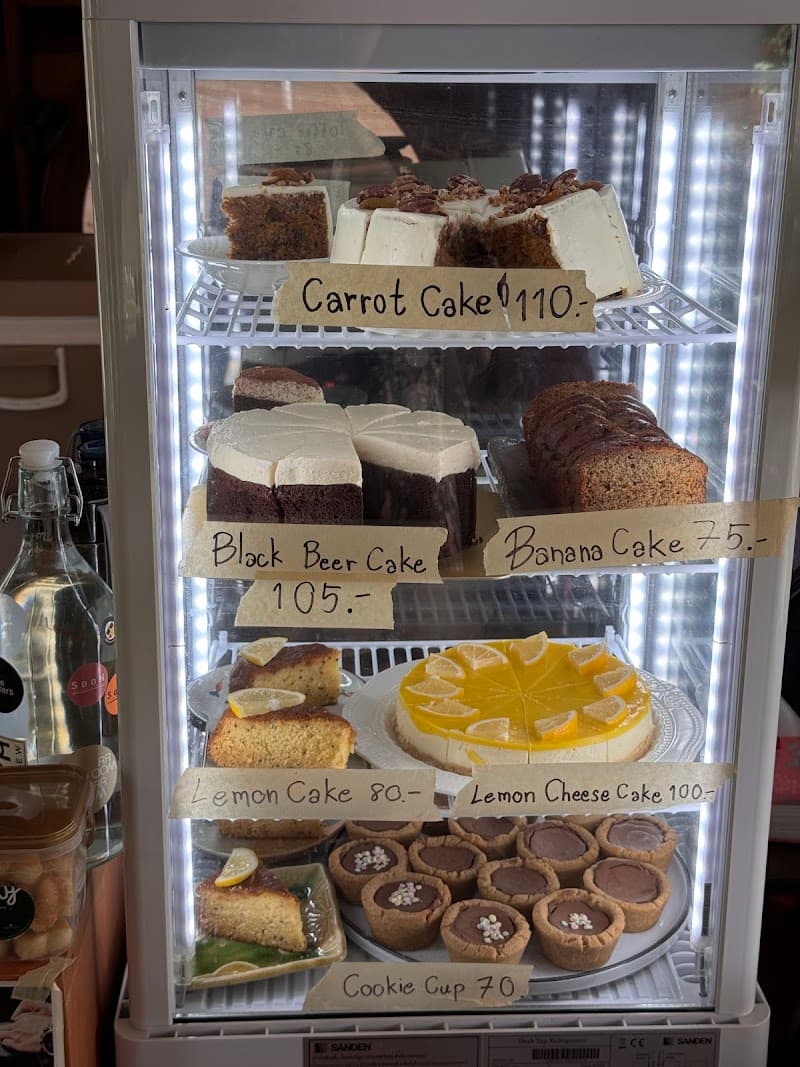 Carrot Cake 110.-
Black Beer Cake
105.-
Banana Cake 75.-
Lemon Cake 80.-
Lemon Cheese Cake 100.-
Cookie Cup 70
SANDEN
Desk Top Refrigerator
SANDEN